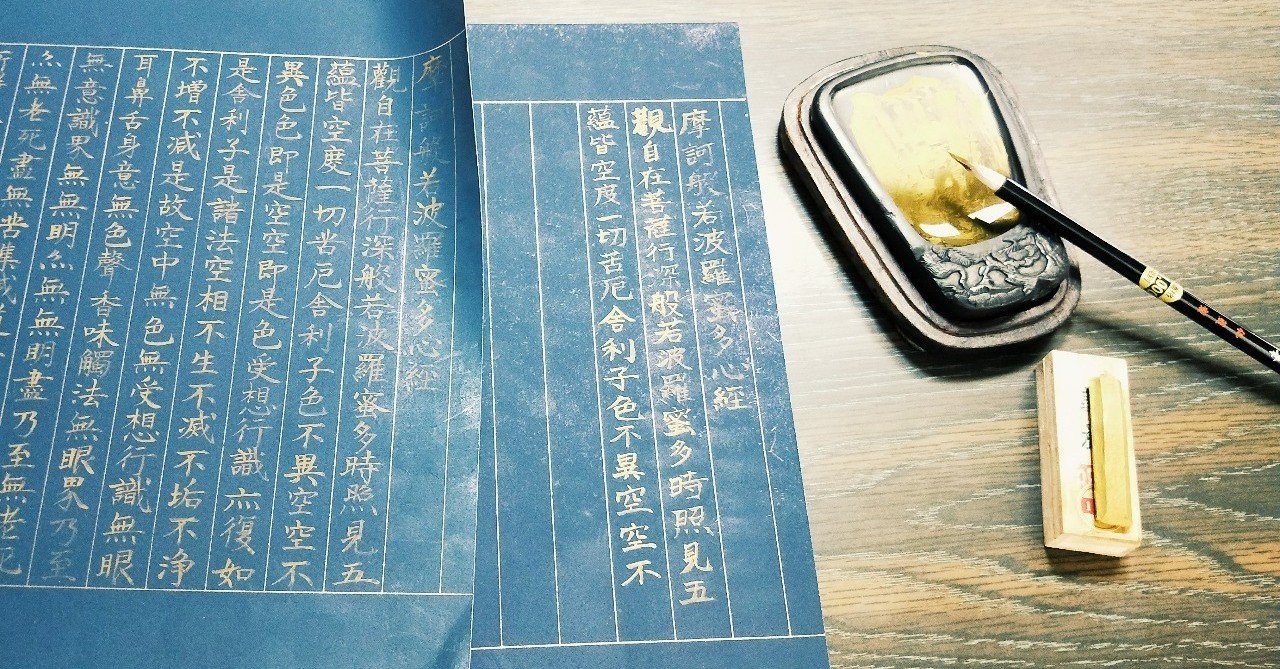 摩訶般若波羅蜜多心經
觀自在菩薩行深般若波羅蜜多時照見五
蘊皆空度一切苦厄舍利子色不異空空不
摩訶般若波羅蜜多心經
觀自在菩薩行深般若波羅蜜多時照見五
蘊皆空度一切苦厄舍利子色不異空空不
異色色即是空空即是色受想行識亦復如
是舍利子是諸法空相不生不滅不垢不浄
不増不減是故空中無色無受想行識無眼
耳鼻舌身意無色聲香味觸法無眼界乃至
無意識界無無明亦無無明盡乃至無老死
亦無老死盡無苦集滅